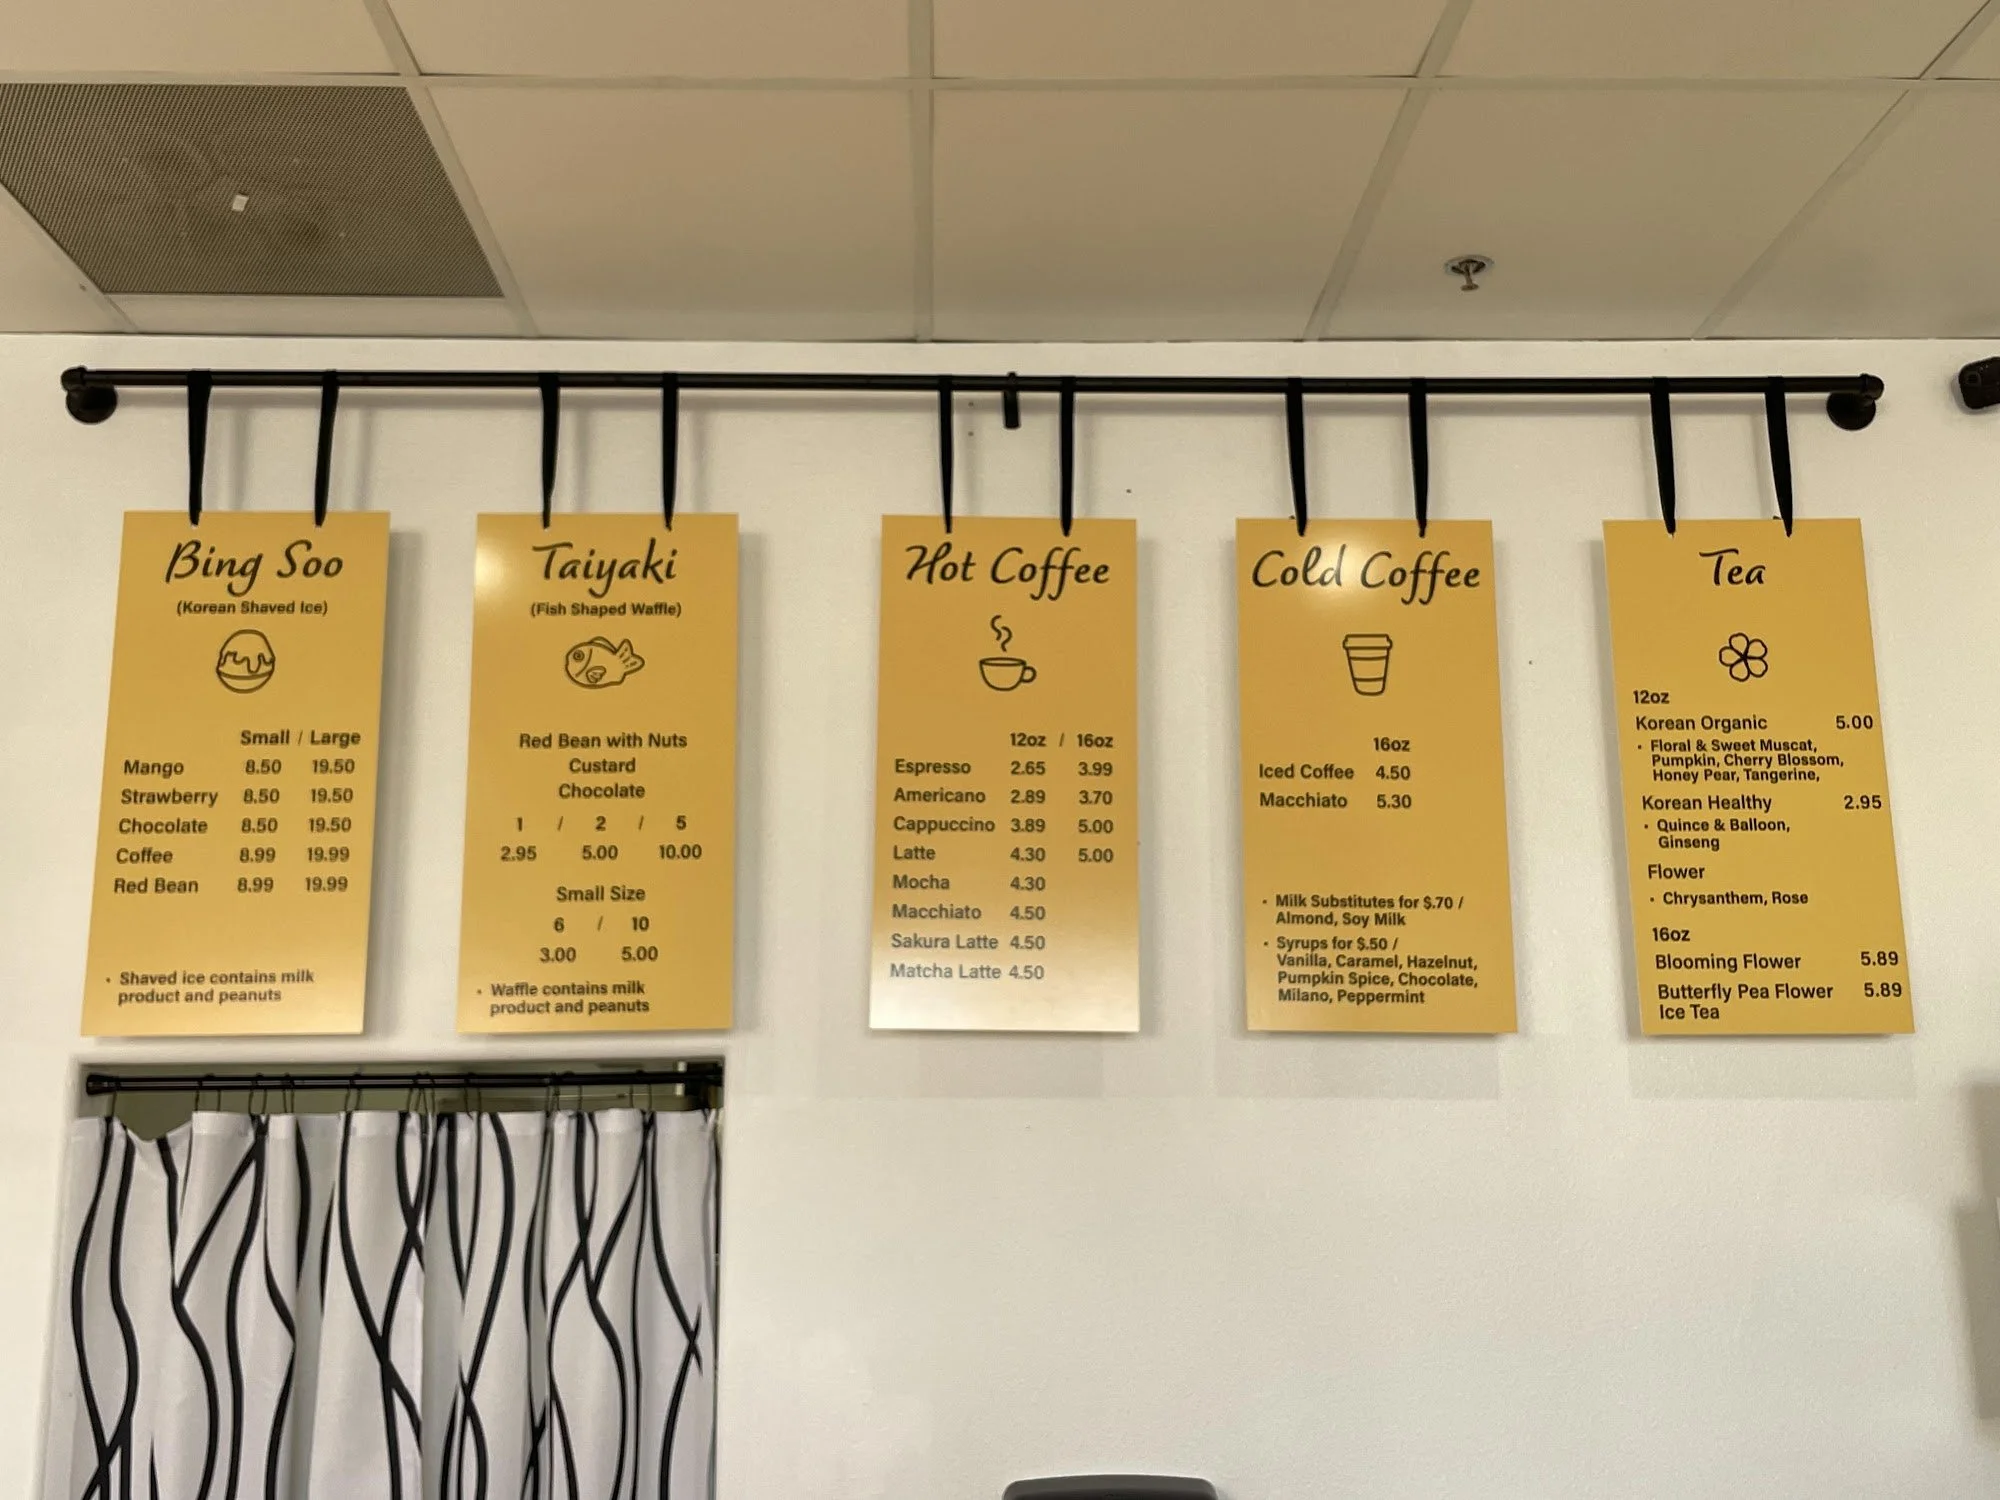 Bing Soo
(Korean Shaved Ice)
Small / Large
Mango 8.50 19.50
Strawberry 8.50 19.50
Chocolate 8.50 19.50
Coffee 8.99 19.99
Red Bean 8.99 19.99
• Shaved ice contains milk
product and peanuts
Taiyaki
(Fish Shaped Waffle)
Red Bean with Nuts
Custard
Chocolate
1 / 2 / 5
2.95 5.00 10.00
Small Size
6 / 10
3.00 5.00
• Waffle contains milk
product and peanuts
Hot Coffee
12oz / 16oz
Espresso 2.65 3.99
Americano 2.89 3.70
Cappuccino 3.89 5.00
Latte 4.30 5.00
Mocha 4.30
Macchiato 4.50
Sakura Latte 4.50
Matcha Latte 4.50
Cold Coffee
16oz
Iced Coffee 4.50
Macchiato 5.30
• Milk Substitutes for $.70 /
Almond, Soy Milk
• Syrups for $.50 /
Vanilla, Caramel, Hazelnut,
Pumpkin Spice, Chocolate,
Milano, Peppermint
Tea
12oz
Korean Organic 5.00
• Floral & Sweet Muscat,
Pumpkin, Cherry Blossom,
Honey Pear, Tangerine,
Korean Healthy 2.95
• Quince & Balloon,
Ginseng
Flower
• Chrysanthem, Rose
16oz
Blooming Flower 5.89
Butterfly Pea Flower 5.89
Ice Tea